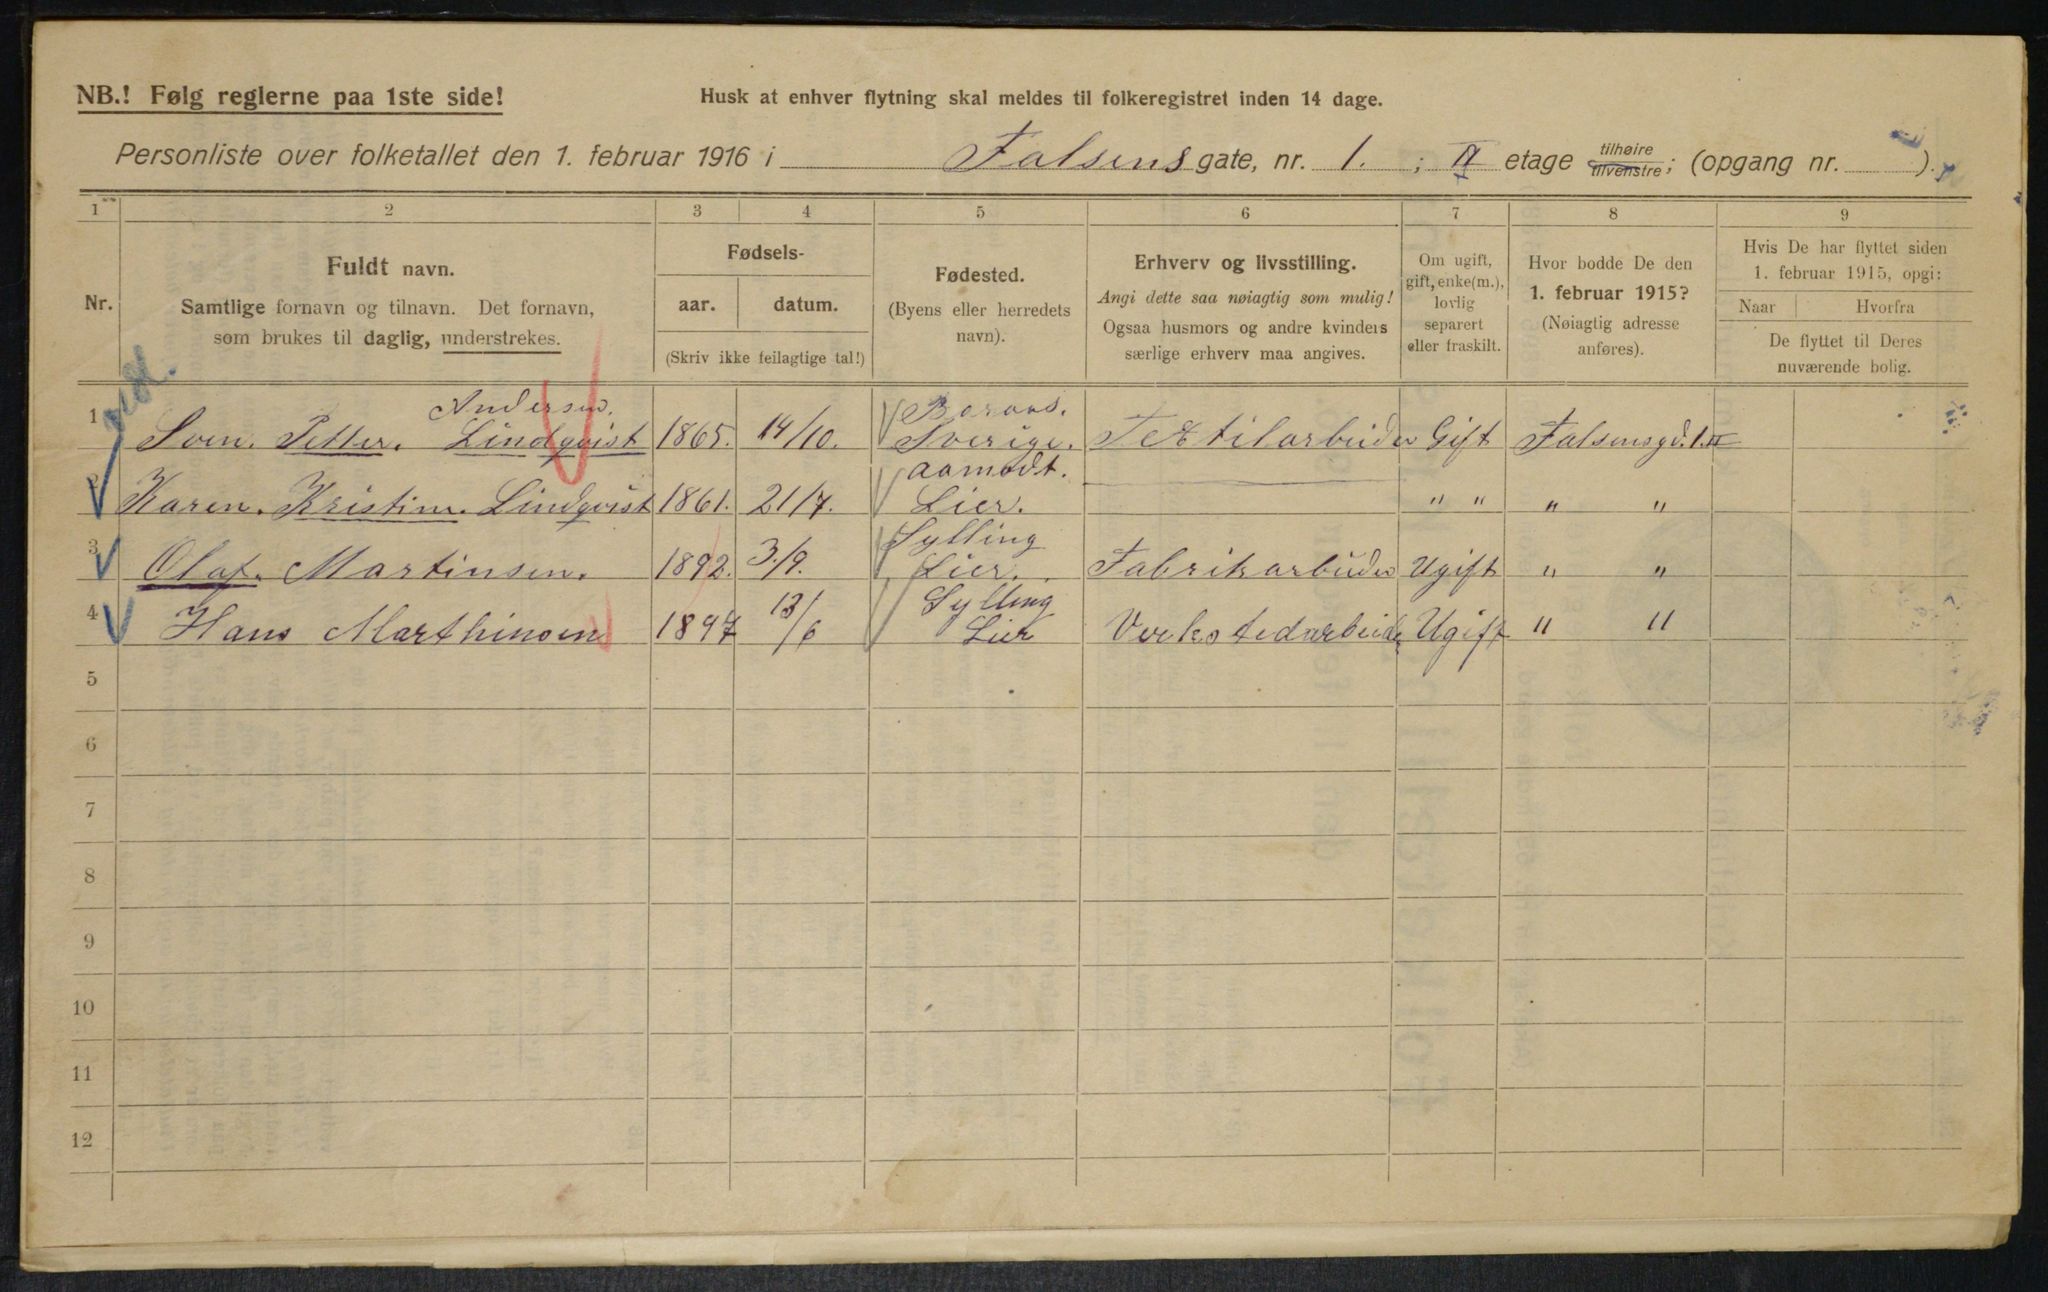 NB.! Følg reglerne paa 1ste side!
Husk at enhver flytning skal meldes til folkeregistret inden 14 dage.
Personliste over folketallet den 1. februar 1916 i Falsens gate, nr. 1. ; II etage tilhøire tilvenstre; (opgang nr. ).
1 2 3 4 5 6 7 8 9
Nr.
Fuldt navn.
Samtlige fornavn og tilnavn. Det fornavn,
som brukes til daglig, understrekes.
Fødsels-
aar. datum.
(Skriv ikke feilagtige tal!)
Fødested.
(Byens eller herredets
navn).
Erhverv og livsstilling.
Angi dette saa nøiagtig som mulig!
Ogsaa husmors og andre kvinders
særlige erhverv maa angives.
Om ugift,
gift, enke(m.),
lovlig
separert
eller fraskilt.
Hvor bodde De den
1. februar 1915?
(Nøiagtig adresse
anføres).
Hvis De har flyttet siden
1. februar 1915, opgi:
Naar Hvorfra
De flyttet til Deres
nuværende bolig.
Andersen. Boraas.
1 Sven. Petter. Lindqvist 1865. 14/10. Sverige. Textilarbeider Gift Falsensgd. 1. II
Aamodt.
2 Karen. Kristine. Lindqvist 1861. 21/7. Lier. " " " "
Sylling
3 Olaf. Martinsen. 1892. 3/9. Lier. Fabrikarbeider Ugift " "
Sylling
4 Hans Marthinsen 1897 13/6 Lier Verkstedarbeider Ugift " "
5
6
7
8
9
10
11
12